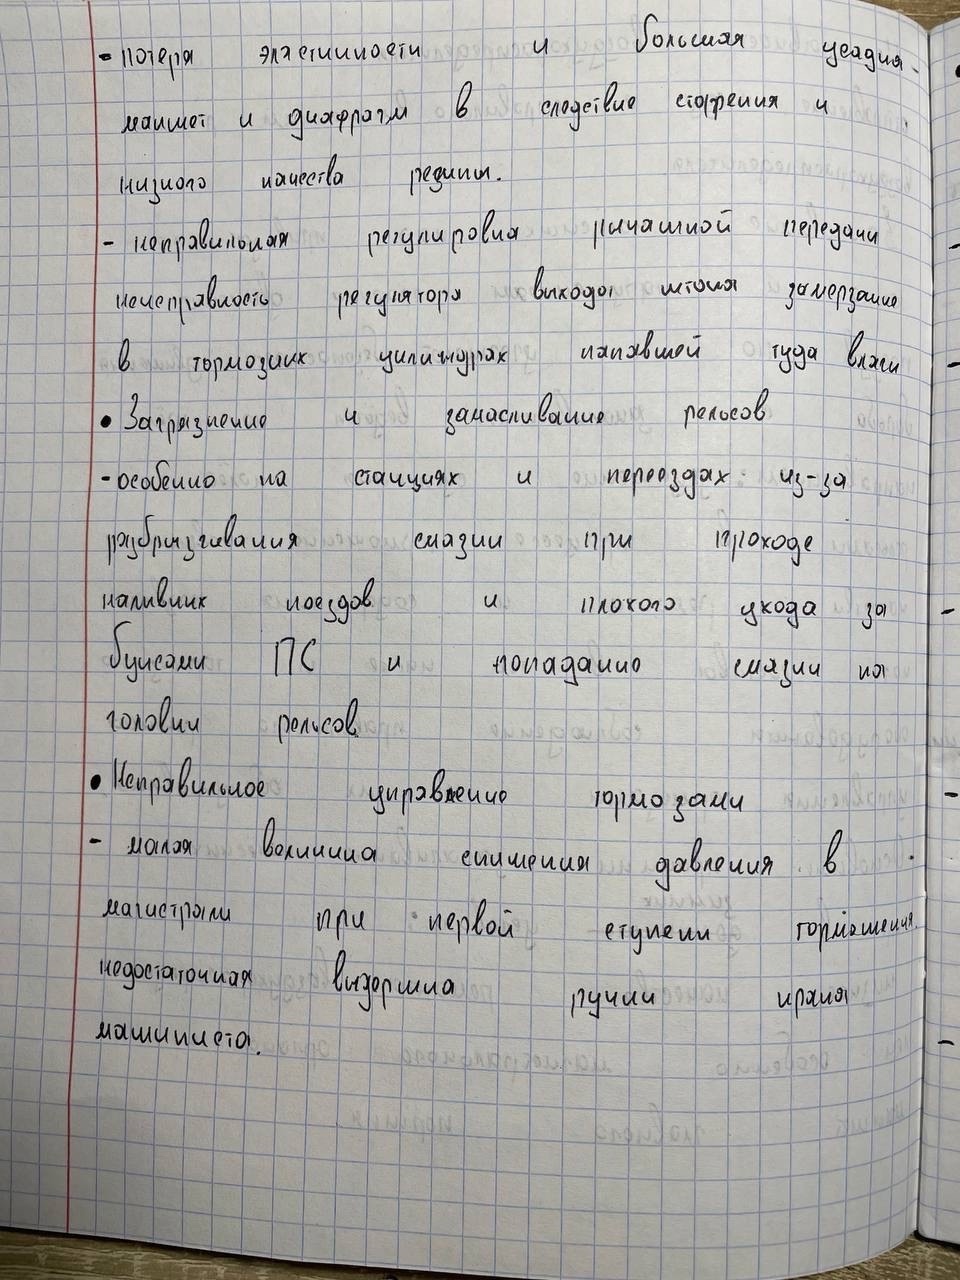 - потеря эластичности и большая усадка
манжет и диафрагм в следствие старения и
низкого качества резины.
- неправильная регулировка рычажной передачи
неисправность регулятора выхода штока замерзание
в тормозных цилиндрах попавшей туда влаги
• Загрязнение и замасливание рельсов
- особенно на станциях и переездах из-за
разбрызгивания смазки при проходе
наливных поездов и плохого ухода за
буксами ПС и попадание смазки на
головки рельсов.
• Неправильное управление тормозами
- малая величина снижения давления в
магистрали при первой ступени торможения.
недостаточная выдержка ручки крана
машиниста.